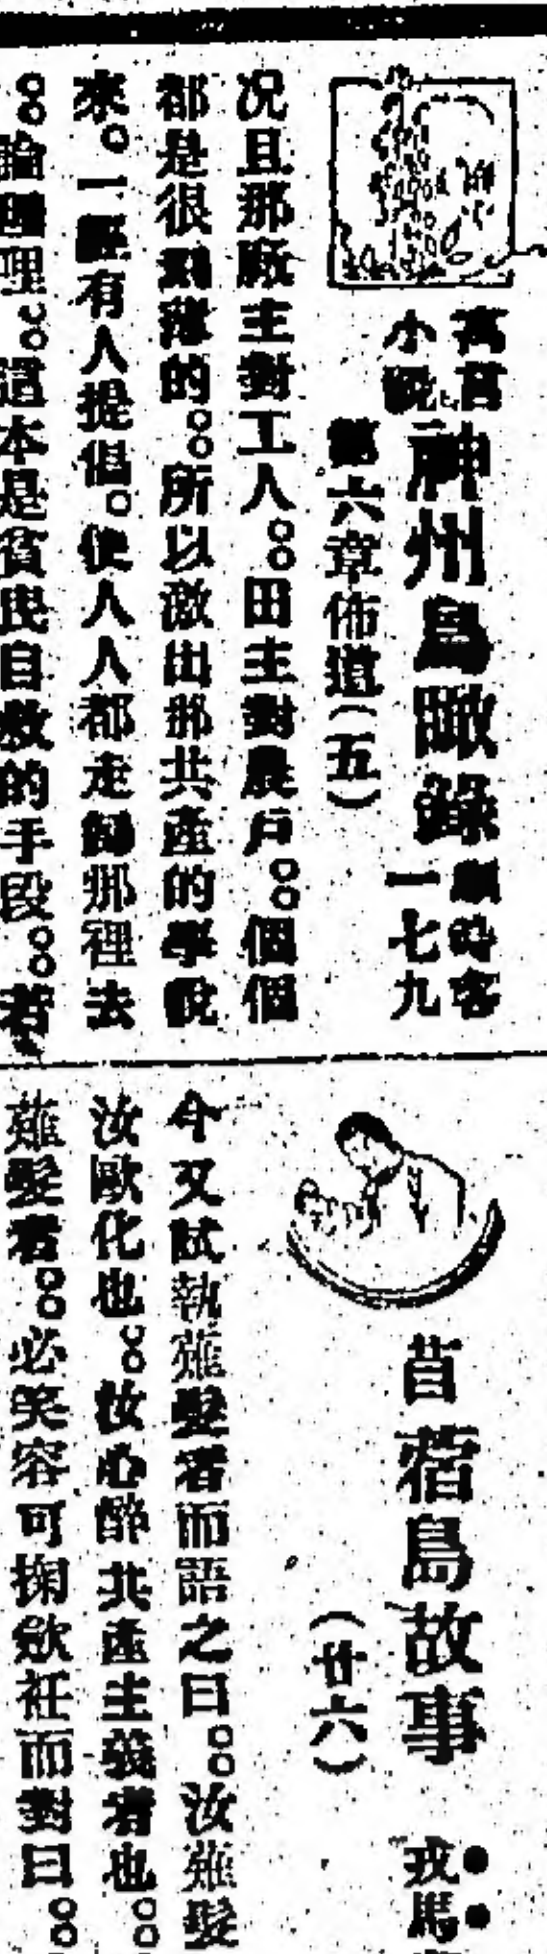 寓言
小說
神州鳥瞰錄
一七九
第六章佈道(五)
况且那廠主對工人。。田主對農戶。。個個
都是很刻薄的。。所以激出那共產的學說
來。一經有人提倡。使人人都走歸那裡去
。。論理。。這本是貧民自救的手段。。若
苜蓿島故事
戎馬
(廿六)
今又試執薙髮者而語之曰。。汝薙髮
汝歐化也。。汝心醉共產主義者也。。
薙髮者。。必笑容可掬歛衽而對曰。。